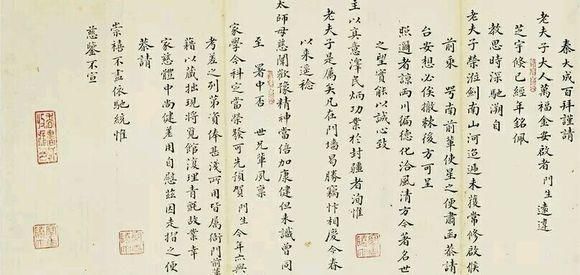 秦大成百拜謹請
老夫子大人萬福金安啟者門生遠違
芝宇倏已經年銘佩
教思時深馳溯自
老夫子榮涖劍南山河迢遞未獲常修啟候
前東 岑南前輩使星之便肅函恭請
台安想必俟撤棘後方可呈
照邇者諒兩川徧德化洽風清方今著名世
之望實能以誠心致
主以真意澤民炳功業於封疆者洵惟
老夫子是屬矣凡在門墻曷勝竊忭相慶今春
以來遠稔
太師母慈闈歡豫精神當倍加康健但未識曾同
至 署中否 世兄輩夙稟
家學今科定當榮發可先預賀門生今年六與
考差之列第資俸甚淺兩用皆屬衙門前輩
藉以藏拙現將覓館復理青氈故業幸
家慈體中尚健差用自慰茲因走摺之便
恭請
崇禧不盡依馳統惟
慈鑒不宣